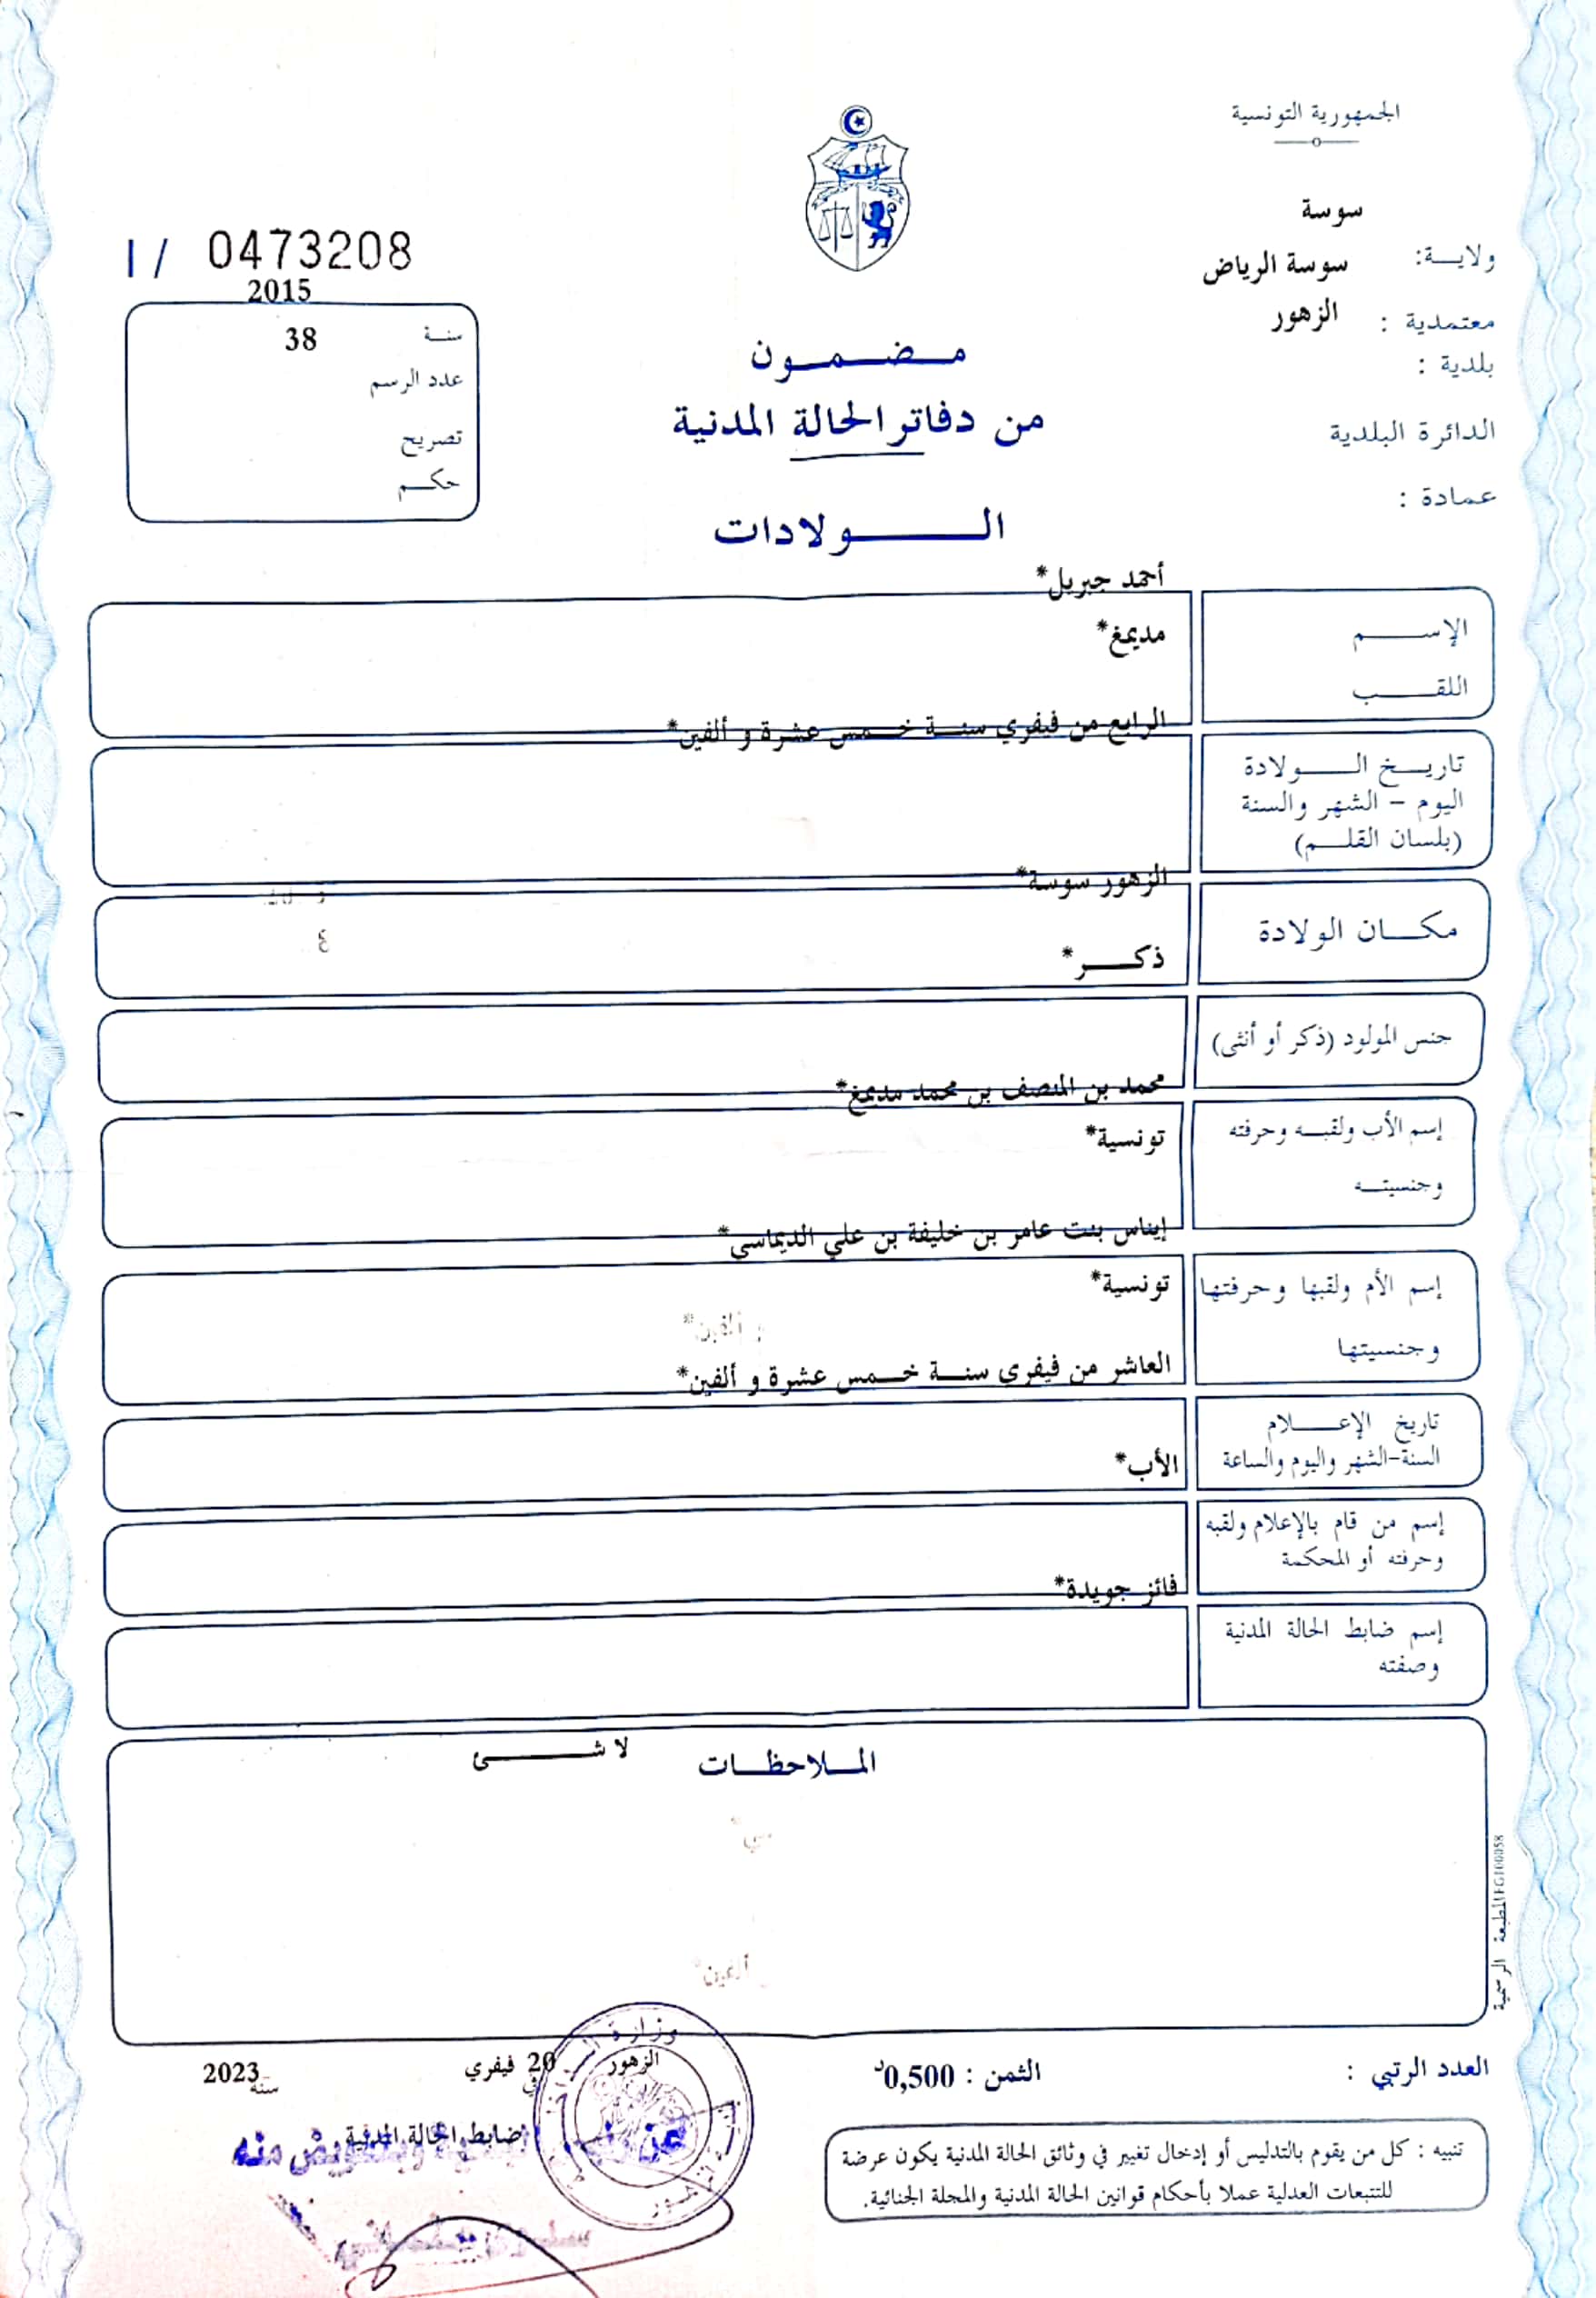 الجمهورية التونسية
سوسة
ولايـــة:
سوسة الرياض
معتمدية :
الزهور
بلدية :
الدائرة البلدية
عمادة :
I / 0473208
2015
سنـة
38
عدد الرسم
تصريح
حكـــم
مــضــمــون
من دفاتر الحالة المدنية
الـــــولادات
أحمد جبريل*
الإســــم
مديمغ*
اللقــــب
الرابع من فيفري سنــة خـــمس عشرة و ألفين*
تاريــخ الــــولادة
اليوم - الشهر والسنة
(بلسان القلـــم)
الزهور سوسة*
مكـــان الولادة
ذكـــــر*
جنس المولود (ذكر أو أنثى)
محمد بن المنصف بن محمد مديمغ*
إسم الأب ولقبــه وحرفته
تونسية*
وجنسيتــه
إيناس بنت عامر بن خليفة بن علي الديماسي*
إسم الأم ولقبها وحرفتها
تونسية*
وجنسيتها
العاشر من فيفري سنــة خـــمس عشرة و ألفين*
تاريخ الإعــــلام
السنة-الشهر واليوم والساعة
الأب*
إسم من قام بالإعلام ولقبه
وحرفته أو المحكمة
فائز جويدة*
إسم ضابط الحالة المدنية
وصفته
الملاحظــات
لا شـــــئ
المطبعة الرسمية
العدد الرتبي :
الثمن : 0,500د
الزهور
في 20 فيفري
سنة 2023
ضابط الحالة المدنية
تنبيه : كل من يقوم بالتدليس أو إدخال تغيير في وثائق الحالة المدنية يكون عرضة
للتتبعات العدلية عملا بأحكام قوانين الحالة المدنية والمجلة الجنائية.